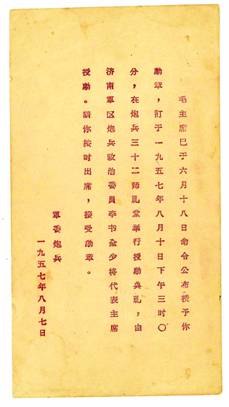 毛主席已于六月十八日命令公布授予你
勳章，訂于一九五七年八月十日下午三时〇
分，在炮兵三十二师礼堂举行授勳典礼，由
济南軍区炮兵政治委員李书全少将代表主席
授勳。請你按时出席，接受勳章。
軍委炮兵
一九五七年八月七日